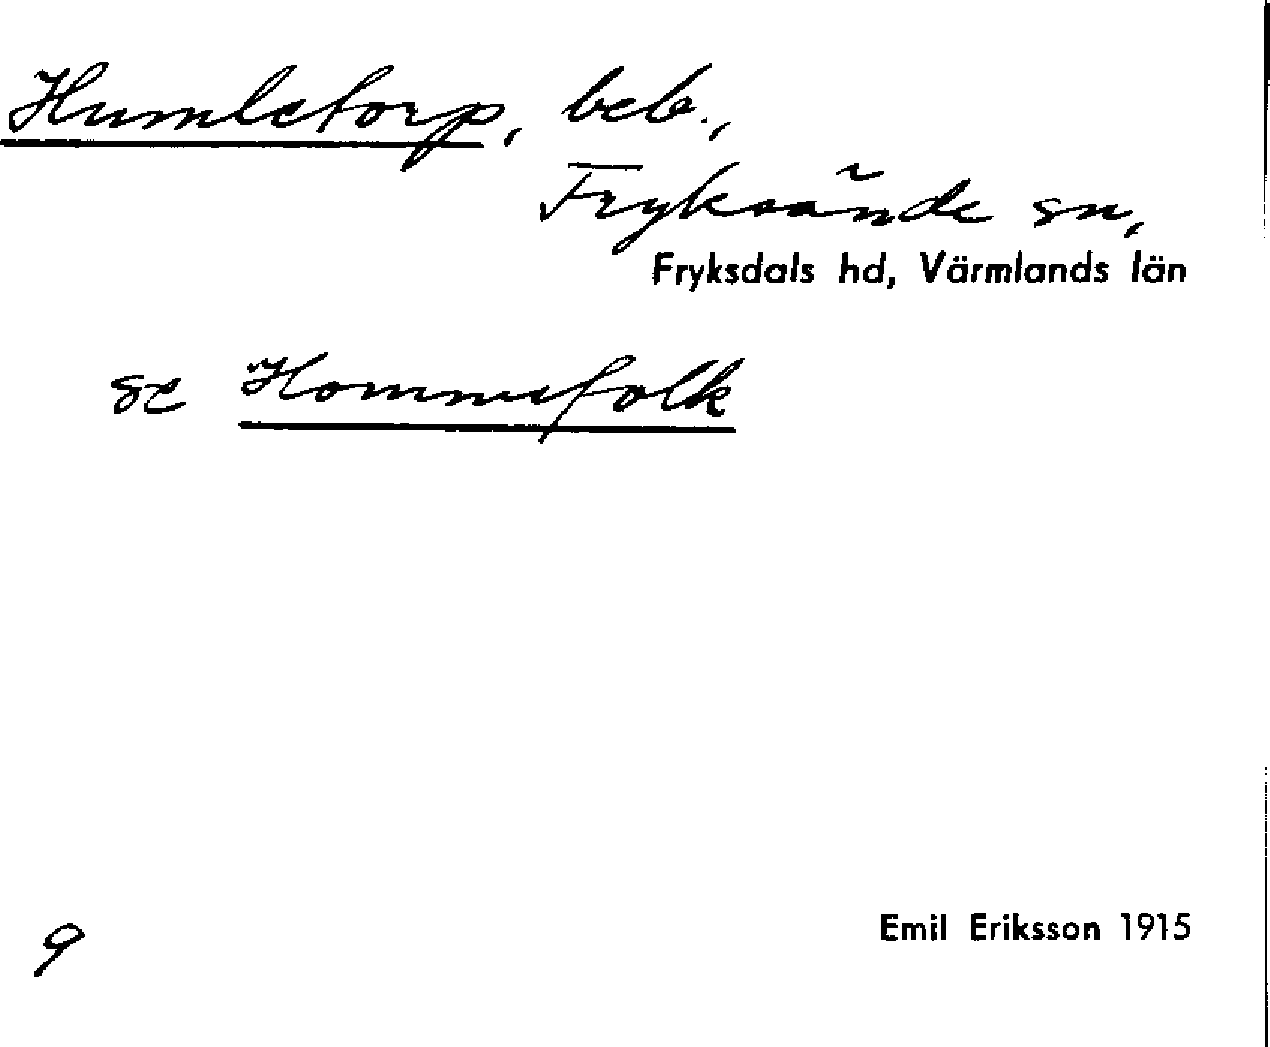 Humletorp, beb.,
Fryksände sn,
Fryksdals hd, Värmlands län
se Hommefolk
9
Emil Eriksson 1915